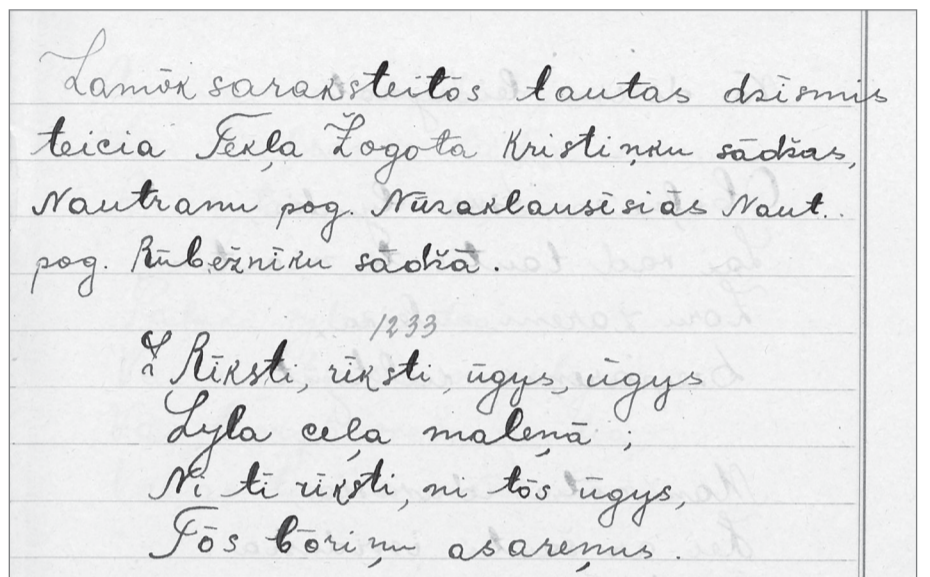 Lamōk saraksteitōs tautas dzismis
teicia Fekļa Žogota Kristiņku sādžas,
Nautranu pog. Nūraklausīsiās Naut.
pog. Rūbežnīku sādžā.
1233
Rīksti, rīksti, ūgys, ūgys
Lyla ceļa maleņā ;
Ni tī rīksti, ni tōs ūgys,
Tōs bōriņu asareņus .